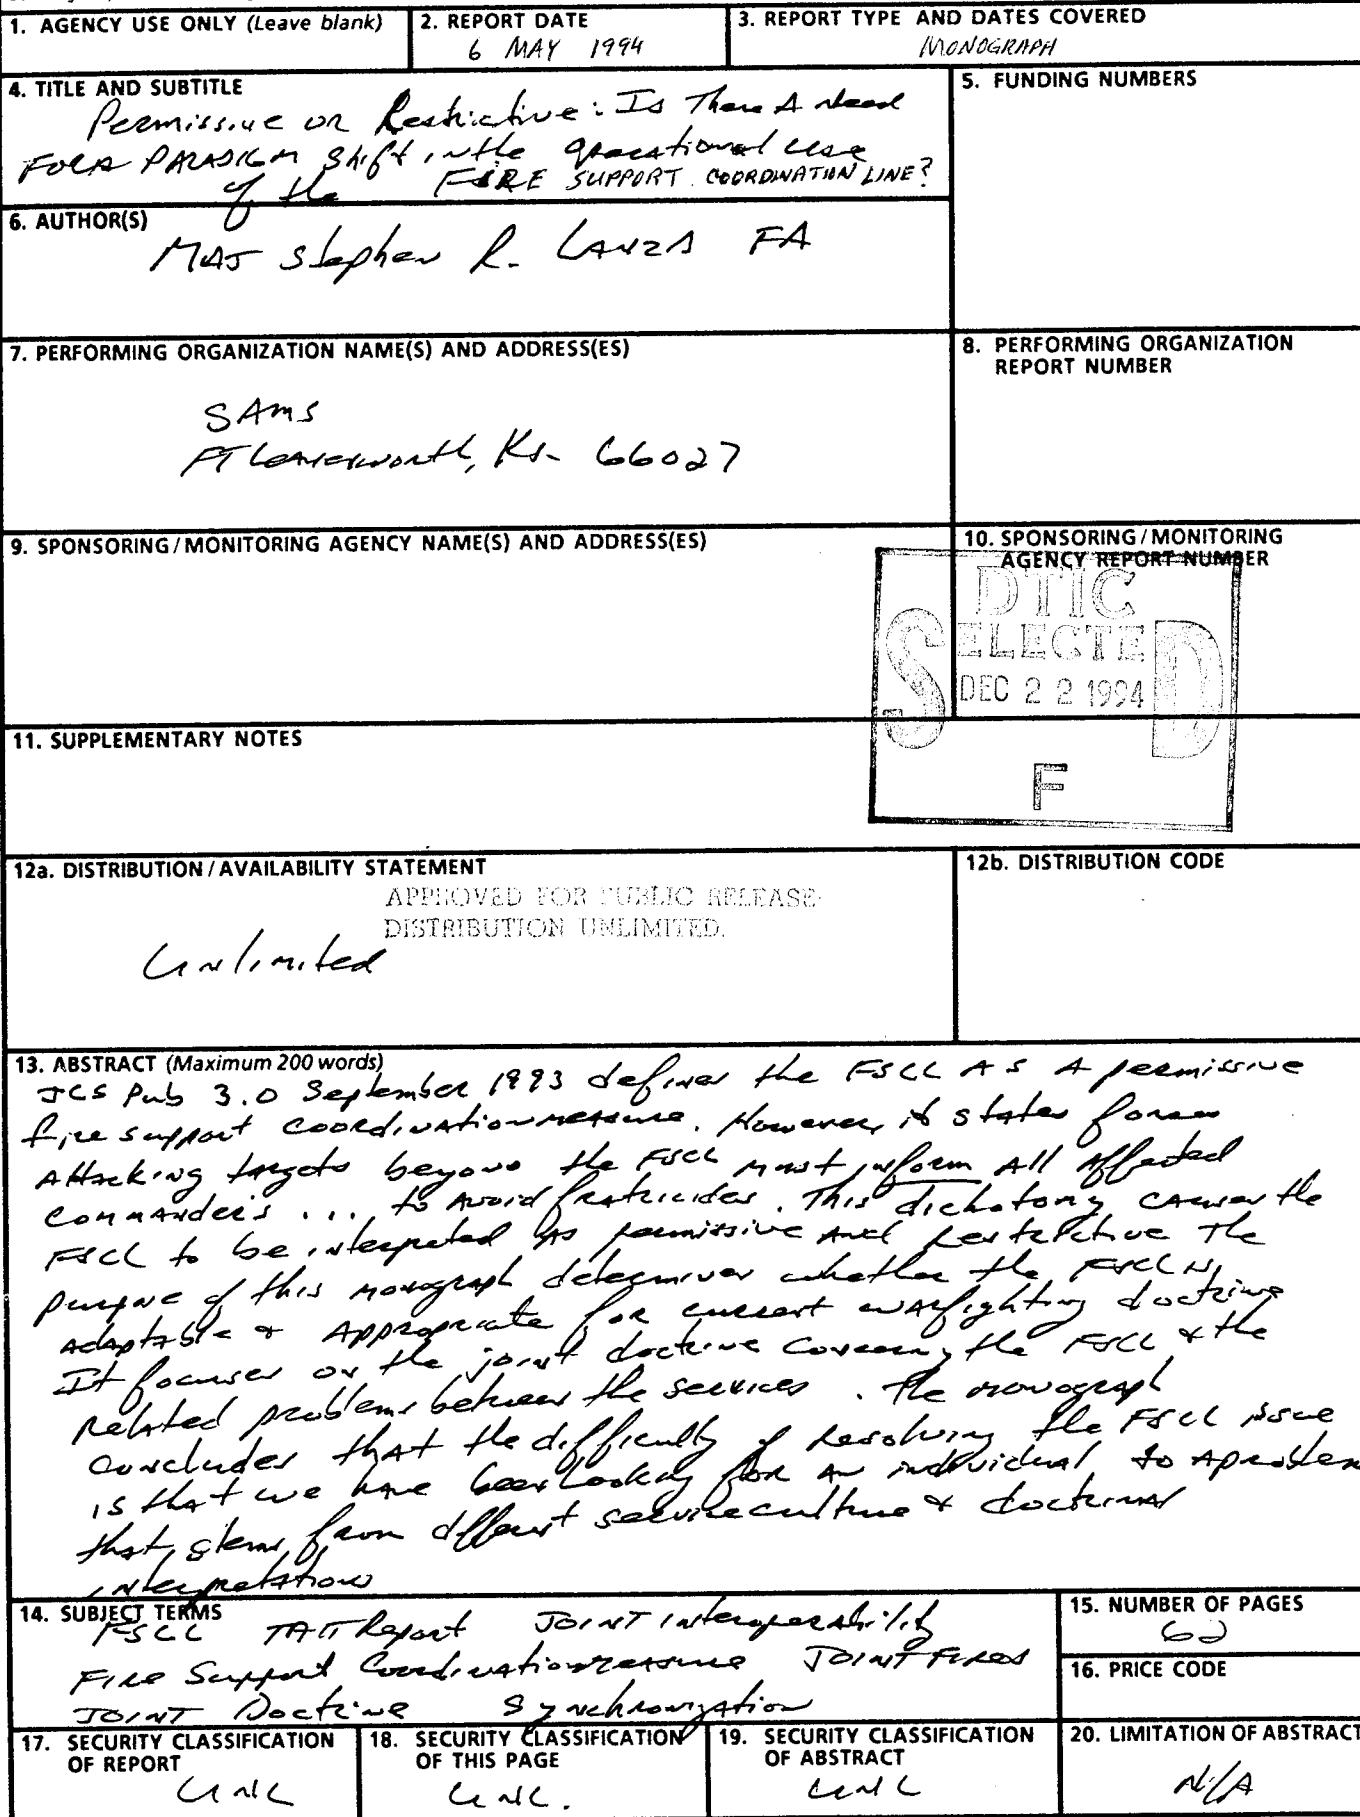 1. AGENCY USE ONLY (Leave blank)
2. REPORT DATE
6 MAY 1994
3. REPORT TYPE AND DATES COVERED
MONOGRAPH
4. TITLE AND SUBTITLE
Permissive or Restrictive: Is There A Need
For A PARADIGM Shift in the operational use
of the FIRE SUPPORT COORDINATION LINE?
5. FUNDING NUMBERS
6. AUTHOR(S)
MAJ Stephen R. LANZA FA
7. PERFORMING ORGANIZATION NAME(S) AND ADDRESS(ES)
SAMS
FT Leavenworth, Ks. 66027
8. PERFORMING ORGANIZATION
REPORT NUMBER
9. SPONSORING/MONITORING AGENCY NAME(S) AND ADDRESS(ES)
10. SPONSORING/MONITORING
AGENCY REPORT NUMBER
DTIC
SELECTED
DEC 22 1994
F
11. SUPPLEMENTARY NOTES
12a. DISTRIBUTION/AVAILABILITY STATEMENT
APPROVED FOR PUBLIC RELEASE
DISTRIBUTION UNLIMITED.
Unlimited
12b. DISTRIBUTION CODE
13. ABSTRACT (Maximum 200 words)
JCS Pub 3.0 September 1993 defines the FSCL AS A permissive
fire support coordination measure. However, it states forces
Attacking targets beyond the FSCL must inform All Affected
commanders ... to avoid fratricides. This dichotomy causes the
FSCL to be interpreted as permissive and restrictive The
purpose of this monograph determines whether the FSCL is
adaptable & Appropriate for current warfighting doctrine
It focuses on the joint doctrine concerning the FSCL & the
related problems between the services. The monograph
concludes that the difficulty of resolving the FSCL issue
is that we have been looking for an individual to a problem
that stems from different service culture & doctrinal
interpretations
14. SUBJECT TERMS
FSCL TAIT Report JOINT interoperability
Fire Support Coordination measure JOINT FIRES
JOINT Doctrine Synchronization
15. NUMBER OF PAGES
62
16. PRICE CODE
17. SECURITY CLASSIFICATION
OF REPORT
UNC
18. SECURITY CLASSIFICATION
OF THIS PAGE
UNC.
19. SECURITY CLASSIFICATION
OF ABSTRACT
UNC
20. LIMITATION OF ABSTRACT
N/A